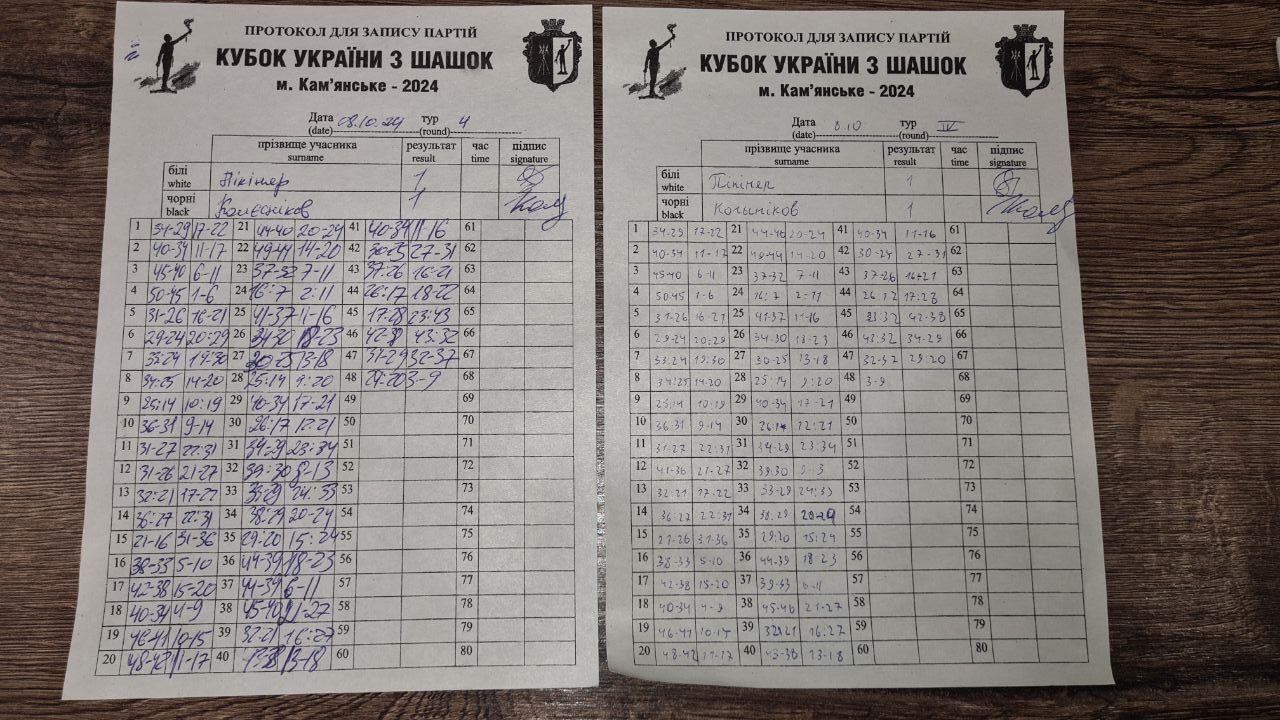 ПРОТОКОЛ ДЛЯ ЗАПИСУ ПАРТІЙ
КУБОК УКРАЇНИ З ШАШОК
м. Кам'янське - 2024
Дата 08.10.24 тур 4
(date) (round)
прізвище учасника результат час підпис
surname result time signature
білі Пікінер 1
white
чорні Колєсніков 1
black
1 34-29 17-22 21 44-40 20-24 41 40-34 11-16 61
2 40-34 11-17 22 49-44 14-20 42 30-25 27-31 62
3 45-40 6-11 23 37-32 7-11 43 37:26 16-21 63
4 50-45 1-6 24 16:7 2:11 44 26:17 18-22 64
5 31-26 16-21 25 41-37 11-16 45 17:28 23:43 65
6 29-24 20:29 26 34-30 18-23 46 42-38 43:32 66
7 33:24 19:30 27 30-25 13-18 47 34-29 32-37 67
8 34:25 14-20 28 25:14 9:20 48 29:20 3-9 68
9 25:14 10:19 29 40-34 17-21 49 69
10 36-31 9-14 30 26:17 12:21 50 70
11 31-27 22:31 31 34-29 23:34 51 71
12 31-26 21-27 32 39:30 8-13 52 72
13 32:21 17-22 33 33-29 24:33 53 73
14 36:27 22:31 34 38:29 20-24 54 74
15 21-16 31-36 35 29:20 15:24 55 75
16 38-33 5-10 36 44-39 18-23 56 76
17 42-38 15-20 37 44-39 6-11 57 77
18 40-34 4-9 38 45-40 21-27 58 78
19 46-41 10-15 39 32:21 16:27 59 79
20 48-42 11-17 40 43-38 13-18 60 80
ПРОТОКОЛ ДЛЯ ЗАПИСУ ПАРТІЙ
КУБОК УКРАЇНИ З ШАШОК
м. Кам'янське - 2024
Дата 8.10 тур IV
(date) (round)
прізвище учасника результат час підпис
surname result time signature
білі Пікінер 1
white
чорні 1
black
1 34-29 17-22 21 44-40 20-24 41 40-34 11-16 61
2 40-34 11-17 22 49-44 14-20 42 30-24 27-31 62
3 45-40 6-11 23 37-32 7-11 43 37-26 16-21 63
4 50-45 1-6 24 16:7 2:11 44 26:17 17:28 64
5 31-26 16-21 25 41-37 11-16 45 33:32 42-38 65
6 29-24 20:29 26 34-30 18-23 46 42:32 34-29 66
7 33:24 19:30 27 30-25 13-18 47 32-37 29:20 67
8 34:25 14-20 28 25:14 9:20 48 3-9 68
9 25:14 10:19 29 40-34 17-21 49 69
10 36-31 9-14 30 26:17 12:21 50 70
11 31-27 22:31 31 34-29 23:34 51 71
12 41-36 21-27 32 39:30 52 72
13 32:21 17-22 33 33-29 24:33 53 73
14 36:27 22:31 34 38:29 20-24 54 74
15 21-26 31-36 35 29:20 15:24 55 75
16 38-33 5-10 36 44-39 18-23 56 76
17 42-38 15-20 37 39-33 6-11 57 77
18 40-34 4-9 38 45-40 21-27 58 78
19 46-41 10-14 39 32:21 16:27 59 79
20 48-42 11-17 40 43-38 13-18 60 80